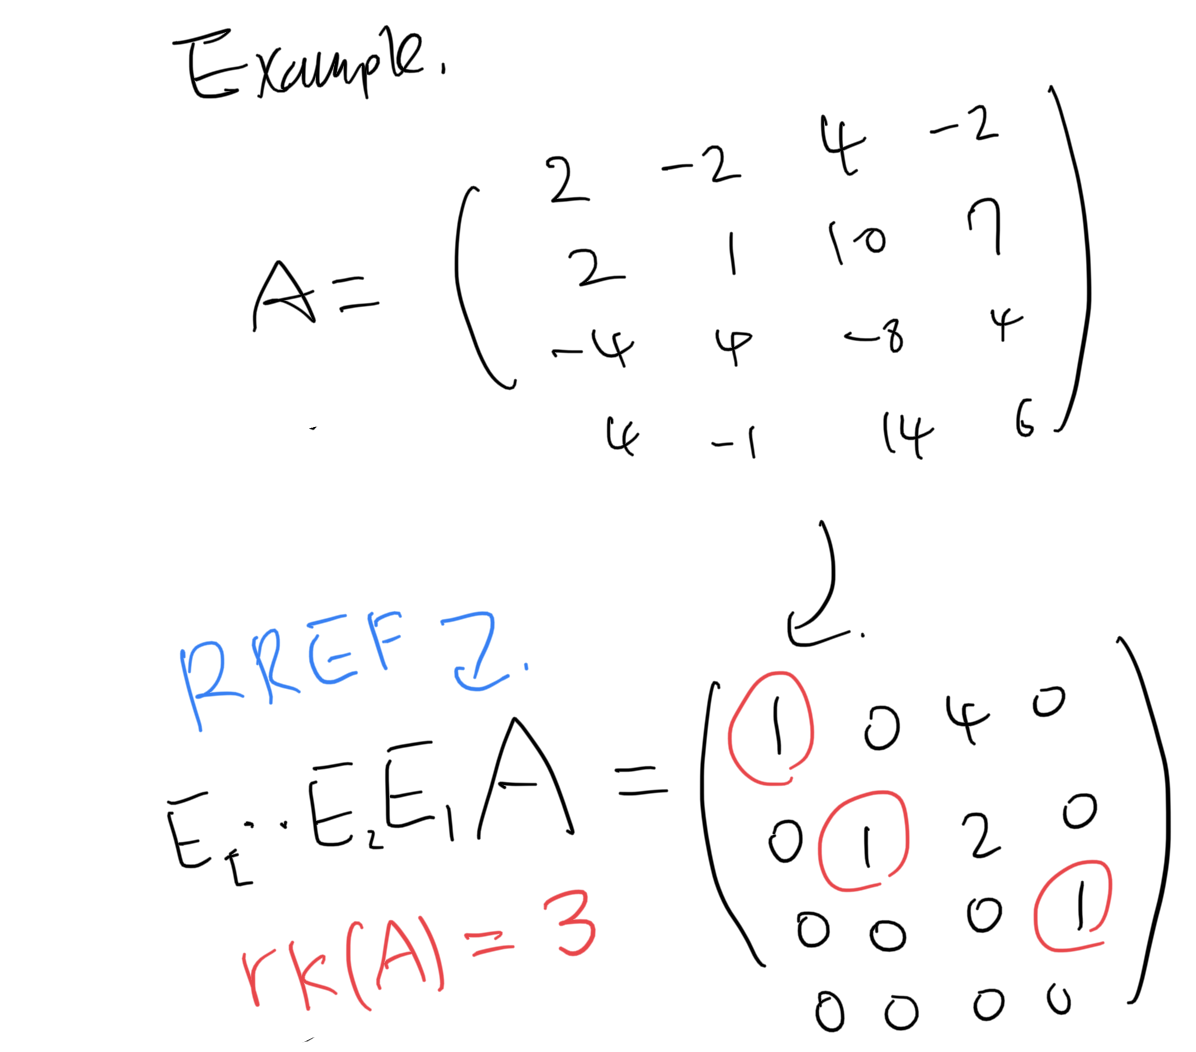 Example.
A = ( 2 -2 4 -2
2 1 10 7
-4 4 -8 4
4 -1 14 6 )
RREF
E_l ... E_2 E_1 A = ( 1 0 4 0
0 1 2 0
0 0 0 1
0 0 0 0 )
rk(A) = 3